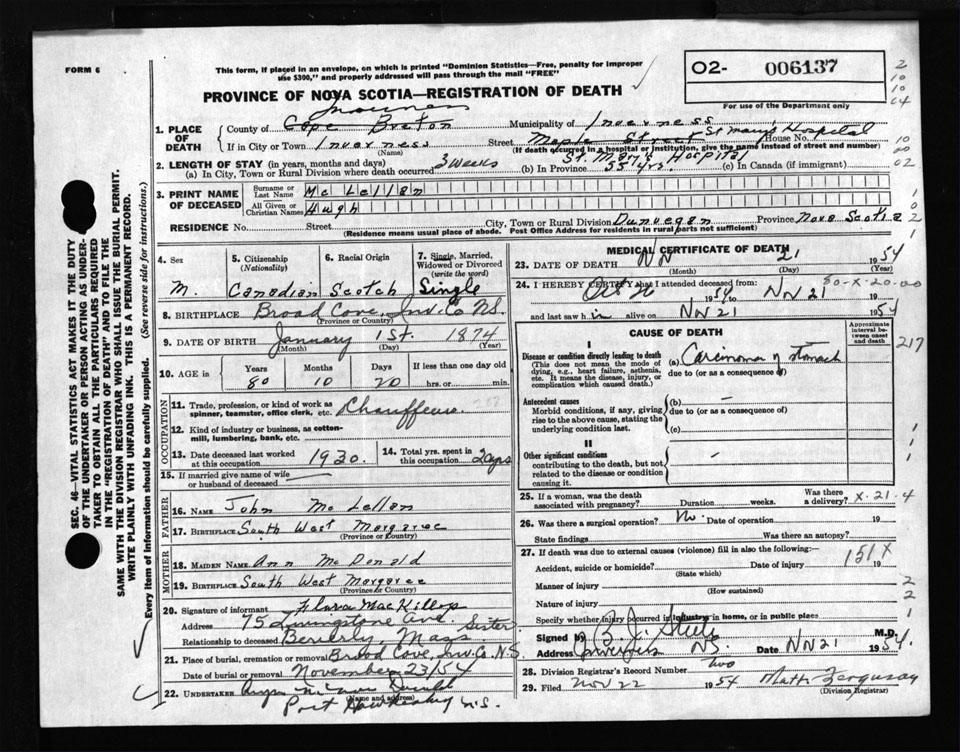 FORM 6
This form, if placed in an envelope, on which is printed "Dominion Statistics—Free, penalty for improper
use $300," and properly addressed will pass through the mail "FREE"
O2- 006137
For use of the Department only
PROVINCE OF NOVA SCOTIA—REGISTRATION OF DEATH
Inverness
1. PLACE OF DEATH { County of Cape Breton Municipality of Inverness
If in City or Town Inverness (Name) Street Maple Street St Mary's Hospital House No.
(If death occurred in a hospital or institution, give the name instead of street and number)
St. Mary's Hospital
2. LENGTH OF STAY (in years, months and days)
(a) In City, Town or Rural Division where death occurred 3 weeks (b) In Province 55 yrs. (c) In Canada (if immigrant)
3. PRINT NAME OF DECEASED { Surname or Last Name McLellan
All Given or Christian Names Hugh
RESIDENCE No. Street City, Town or Rural Division Dunvegan Province Nova Scotia
(Residence means usual place of abode. Post Office Address for residents in rural parts not sufficient)
4. Sex M
5. Citizenship (Nationality) Canadian
6. Racial Origin Scotch
7. Single, Married, Widowed or Divorced (write the word) Single
8. BIRTHPLACE Broad Cove, Inv. Co NS.
(Province or Country)
9. DATE OF BIRTH January 1st. 1874
(Month) (Day) (Year)
10. AGE in { Years 80 Months 10 Days 20 If less than one day old hrs. or min.
OCCUPATION
11. Trade, profession, or kind of work as spinner, teamster, office clerk, etc. Chauffeur.
12. Kind of industry or business, as cotton-mill, lumbering, bank, etc.
13. Date deceased last worked at this occupation 1930.
14. Total yrs. spent in this occupation
15. If married give name of wife or husband of deceased
FATHER
16. NAME John McLellan
17. BIRTHPLACE South West Margaree
(Province or Country)
MOTHER
18. MAIDEN NAME Ann McDonald
19. BIRTHPLACE South West Margaree
(Province or Country)
20. Signature of informant Flora MacKillop
Address 75 Livingstone Ave.
Relationship to deceased Sister
Beverly, Mass
21. Place of burial, cremation or removal Broad Cove, Inv. Co. N.S.
Date of burial or removal November 23/54
22. UNDERTAKER
(Name and address)
Port Hawkesbury N.S.
MEDICAL CERTIFICATE OF DEATH
23. DATE OF DEATH Nov 21 1954
(Month) (Day) (Year)
24. I HEREBY CERTIFY that I attended deceased from:
1954 to Nov 21 1954
and last saw him alive on Nov 21
CAUSE OF DEATH
Approximate interval between onset and death
I
Disease or condition directly leading to death (a) Carcinoma of stomach
(This does not mean the mode of dying, e.g., heart failure, asthenia, etc. It means the disease, injury, or complication which caused death.)
due to (or as a consequence of)
Antecedent causes (b) —
Morbid conditions, if any, giving rise to the above cause, stating the underlying condition last.
due to (or as a consequence of)
(c)
II
Other significant conditions
contributing to the death, but not related to the disease or condition causing it.
25. If a woman, was the death associated with pregnancy? Duration weeks. Was there a delivery?
X-21-4
26. Was there surgical operation? No. Date of operation 19
State findings Was there an autopsy?
27. If death was due to external causes (violence) fill in also the following:—
Accident, suicide or homicide? (State which) Date of injury 19
151X
Manner of injury (How sustained)
Nature of injury
Specify whether injury occurred in industry, in home, or in public place
Signed by M.D.
Address Inverness NS. Date Nov 21 1954.
28. Division Registrar's Record Number Two
29. Filed Nov 22 1954 Matt. Ferguson
(Division Registrar)
SEC. 46—VITAL STATISTICS ACT MAKES IT THE DUTY
OF THE UNDERTAKER OR PERSON ACTING AS UNDER-
TAKER TO OBTAIN ALL THE PARTICULARS REQUIRED
IN THE "REGISTRATION OF DEATH" AND TO FILE THE
SAME WITH THE DIVISION REGISTRAR WHO SHALL ISSUE THE BURIAL PERMIT.
WRITE PLAINLY WITH UNFADING INK. THIS IS A PERMANENT RECORD.
Every item of information should be carefully supplied. (See reverse side for instructions.)
2
10
10
04
10
02
217